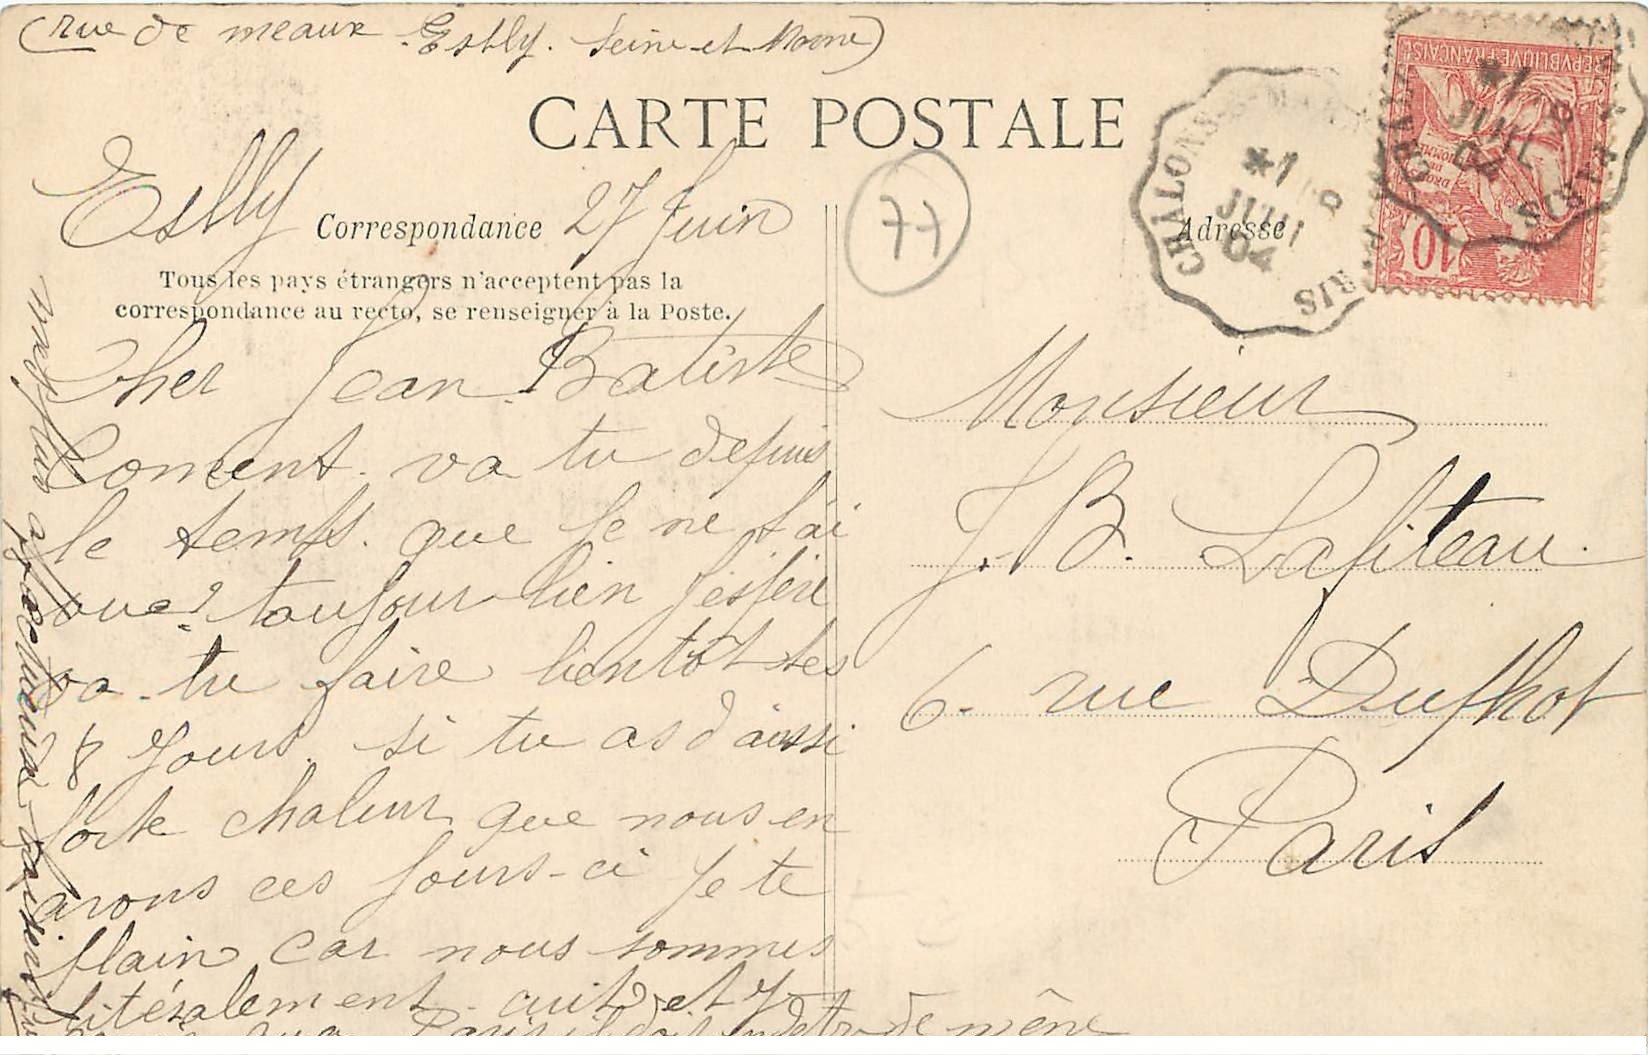 (rue de meaux Esbly. Seine-et Marne)
CARTE POSTALE
Esbly 27 Juin
Correspondance
Tous les pays étrangers n'acceptent pas la
correspondance au recto, se renseigner à la Poste.
Cher Jean Batiste
Coment va tu depuis
le temps que je ne t'ai
vue? toujour bien j'espère
va-tu faire bientôt tes
8 Jours. si tu as d'aussi
forte chaleur que nous en
avons ces Jours-ci Je te
plain car nous sommes
litéralement cuit et
Paris il doit de même
mes plus affectueux
77
Adresse
Monsieur
J.-B. Lafiteau.
6. rue Dufhot
Paris
CHALONS
*1
JUIL
04
RIS
REPVBLIQVE FRANÇAISE
DROITS
DE
10
*1
JUIL
04
PARIS